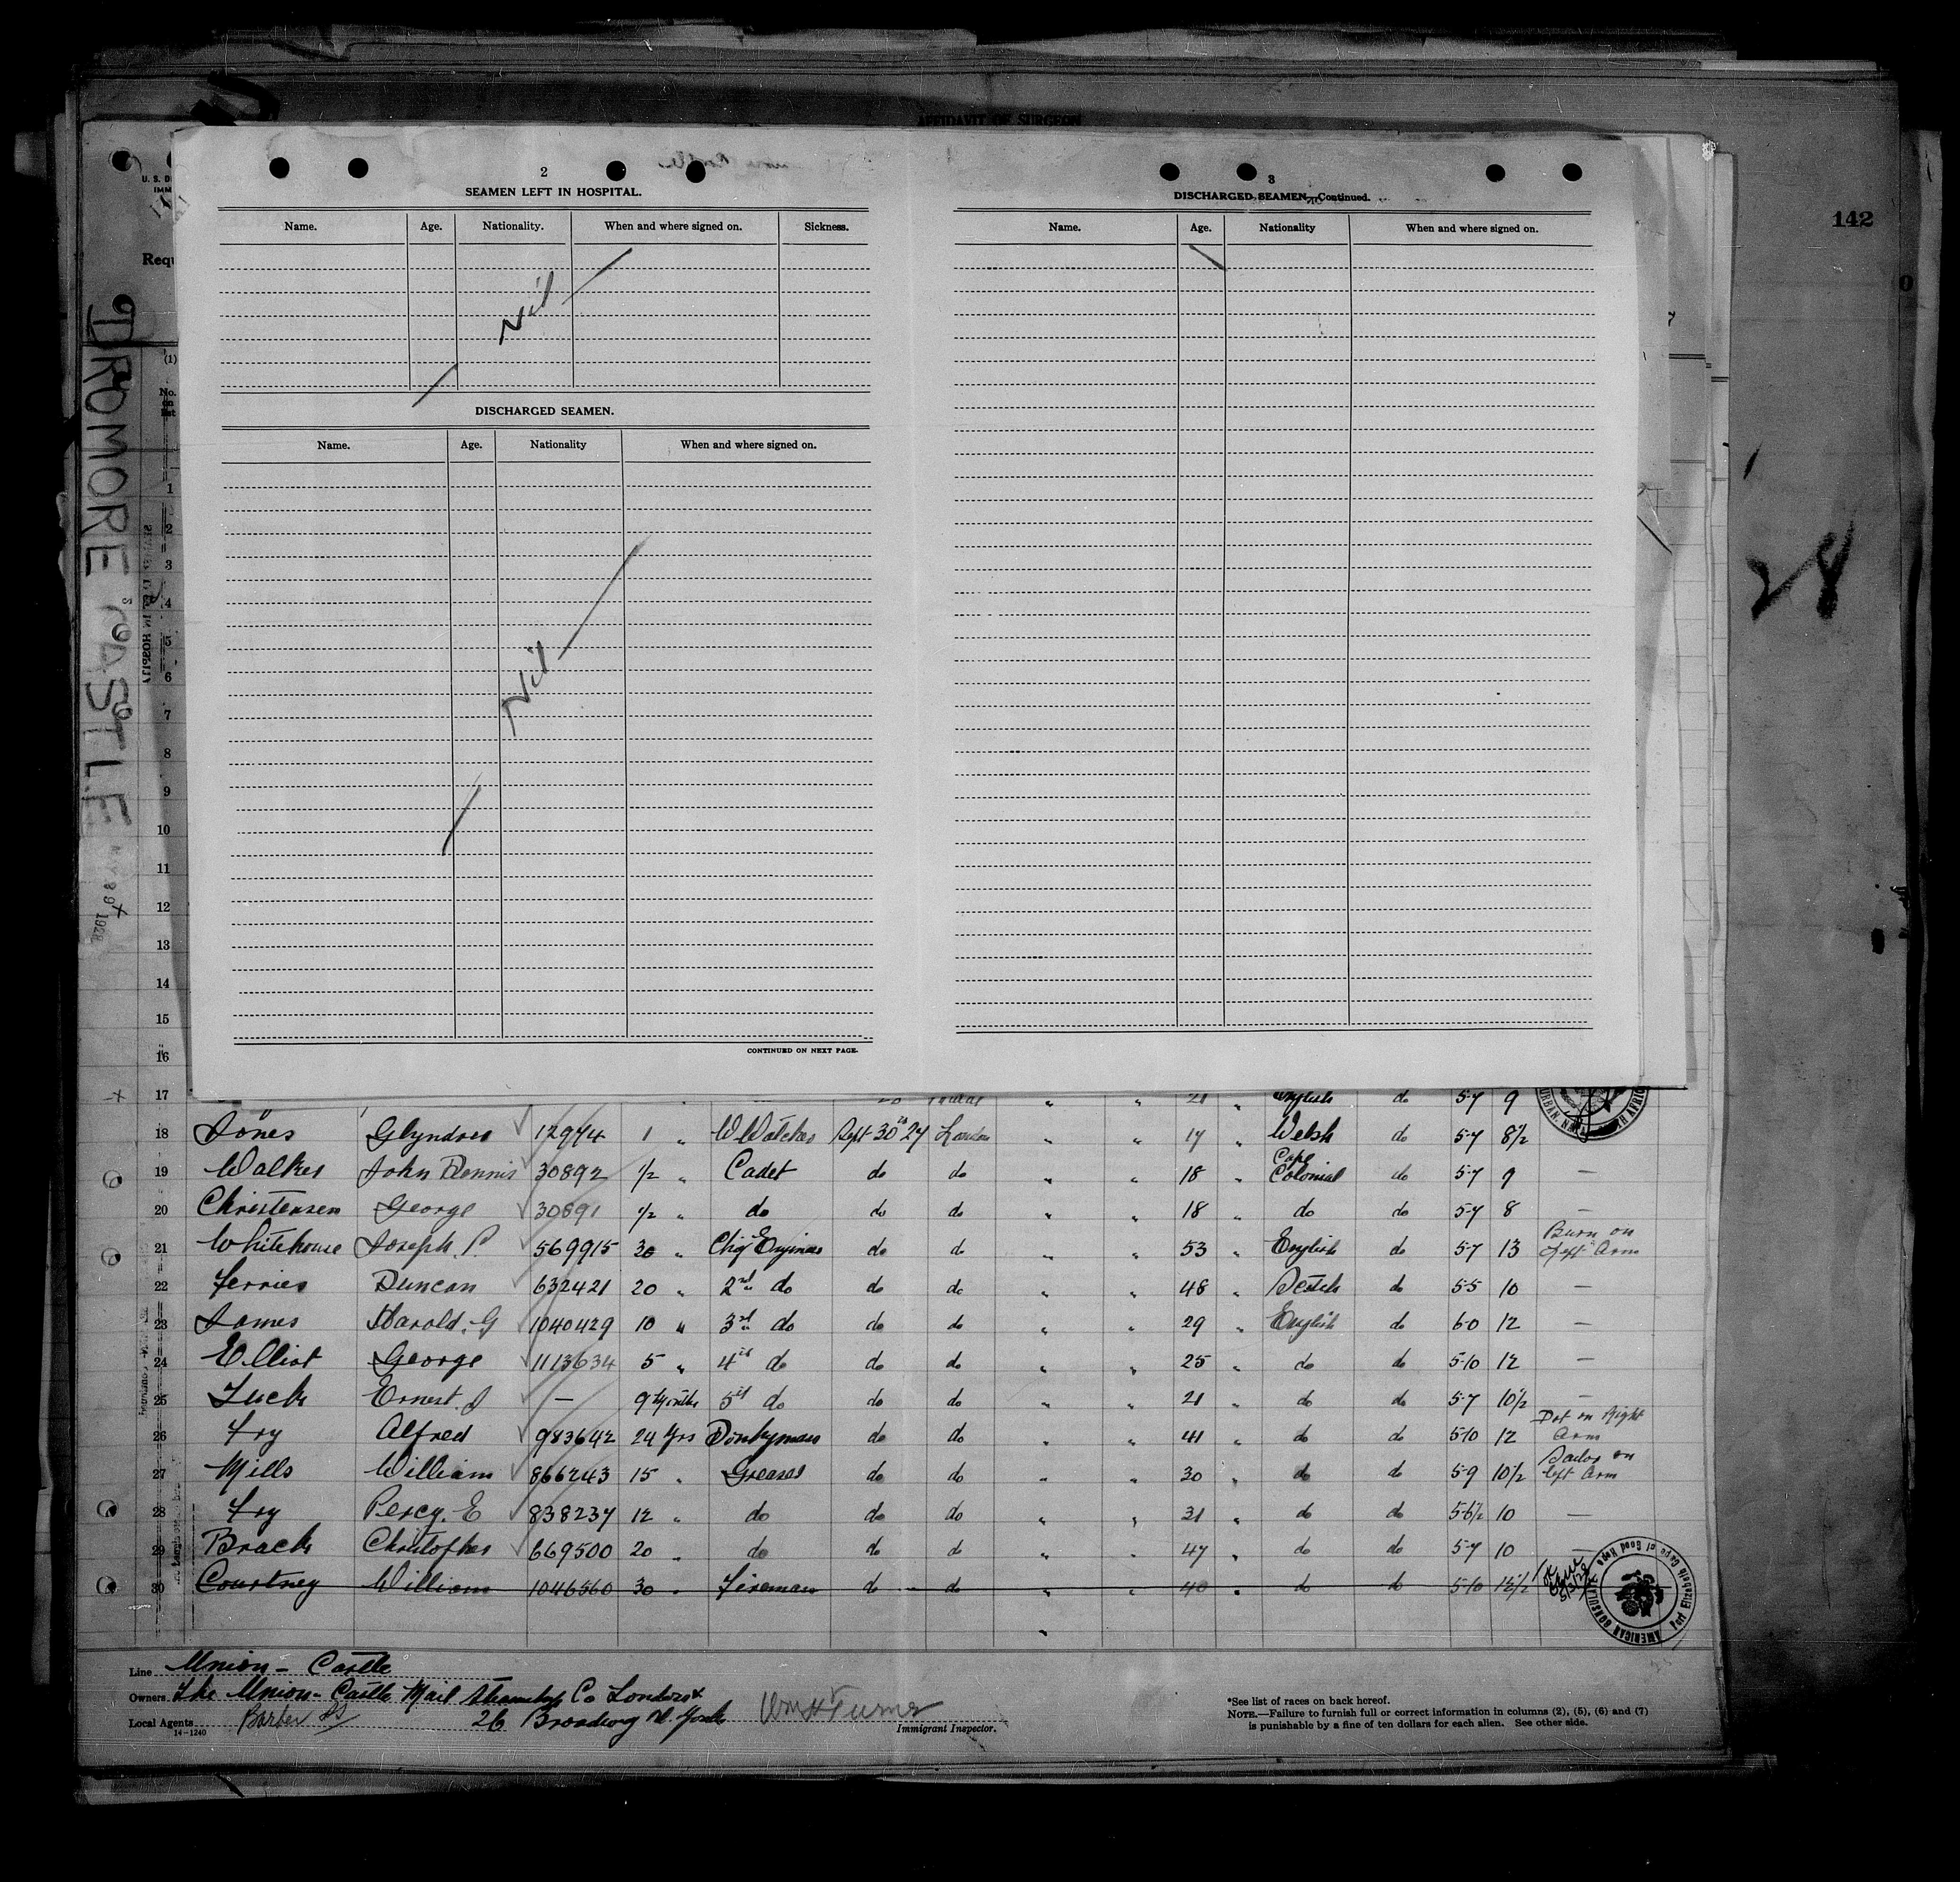 AFFIDAVIT OF SURGEON
142
28
DROMORE CASTLE
MAY 9 1928
U. S. D
IMM
Requ
(1)
No. on list
2
SEAMEN LEFT IN HOSPITAL.
Name. Age. Nationality. When and where signed on. Sickness.
Nil
DISCHARGED SEAMEN.
Name. Age. Nationality When and where signed on.
Nil
CONTINUED ON NEXT PAGE.
3
DISCHARGED SEAMEN—Continued.
Name. Age. Nationality When and where signed on.
1
2
3
4
5
6
7
8
9
10
11
12
13
14
15
16
17 21 " English do 5-7 9
18 Jones Glyndwr 12974 1 " W Watches Sept 30th 27 London " " 17 " Welsh do 5-7 8½
19 Walker John Dennis 30892 ½ " Cadet do do " " 18 " Cape Colonial do 5-7 9 —
20 Christensen George 30891 ½ " do do do " " 18 " do do 5-7 8 —
21 Whitehouse Joseph. P 569915 30 " Chf Engineer do do " " 53 " English do 5-7 13 Burn on Left Arm
22 Ferries Duncan 632421 20 " 2nd do do do " " 48 " Scotch do 5-5 10 —
23 James Harold. G 1040429 10 " 3rd do do do " " 29 " English do 6-0 12 —
24 Elliot George 1113634 5 " 4th do do do " " 25 " do do 5-10 12 —
25 Luck Ernest. J — 9 Months 5th do do do " " 21 " do do 5-7 10½ —
26 Fry Alfred 983642 24 Yrs Donkyman do do " " 41 " do do 5-10 12 Dot on Right Arm
27 Mills William 866243 15 " Greaser do do " " 30 " do do 5-9 10½ Sailor on left Arm
28 Fry Percy. E 838237 12 " do do do " " 31 " do do 5-6½ 10 —
29 Brack Christopher 669500 20 " do do do " " 47 " do do 5-7 10 —
30 Courtney William 1046560 30 " Fireman do do " " 40 " do do 5-10 12½
AMERICAN CONSULATE Port Elizabeth Cape of Good Hope
Line Union-Castle
Owners The Union-Castle Mail Steamship Co London
Local Agents Barber SS 26 Broadway N. York
14-1240
Wm H Turner
Immigrant Inspector.
*See list of races on back hereof.
NOTE.—Failure to furnish full or correct information in columns (2), (5), (6) and (7)
is punishable by a fine of ten dollars for each alien. See other side.